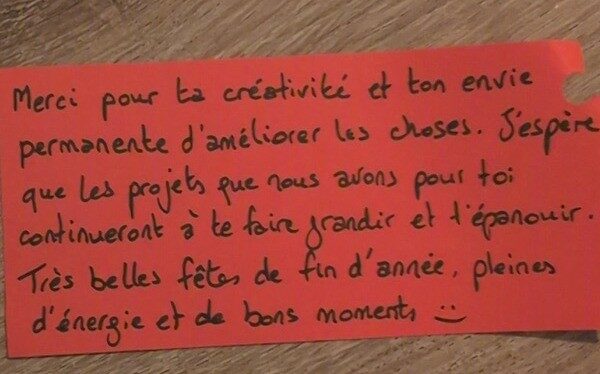 Merci pour ta créativité et ton envie
permanente d'améliorer les choses. J'espère
que les projets que nous avons pour toi
continueront à te faire grandir et t'épanouir.
Très belles fêtes de fin d'année, pleines
d'énergie et de bons moments :)